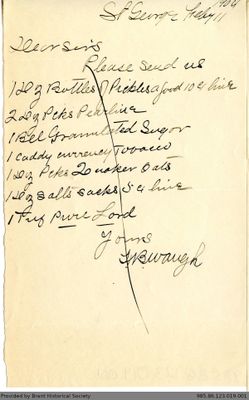 St George Feby 11
1904
Dear Sirs
Please send us
1 Dz Bottles Pickles a good 10¢ line
2 Dz Pcks Pearline
1 Bbl Granulated Sugar
1 Caddy currency Tobacco
1 Dz Pcks Quaker Oats
1 Dz Salts sacks 5¢ line
1 pure Lord
Yours
Waugh
Provided by Brant Historical Society
985.86.123.019.001